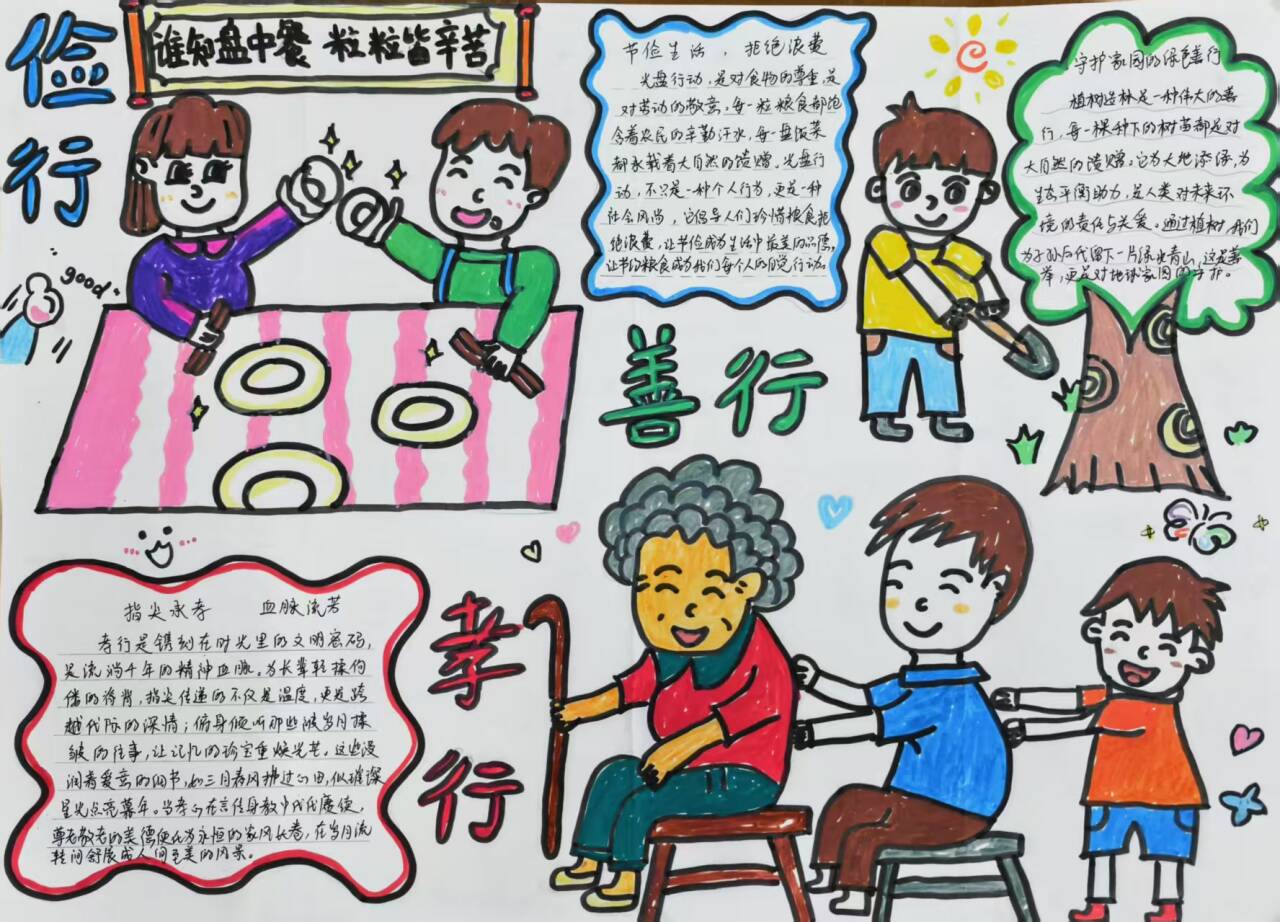 俭行
谁知盘中餐 粒粒皆辛苦
good
节俭生活，拒绝浪费
光盘行动，是对食物的尊重，是
对劳动的敬意。每一粒粮食都饱
含着农民的辛勤汗水，每一盘饭菜
都承载着大自然的馈赠。光盘行
动，不只是一种个人行为，更是一种
社会风尚，它倡导人们珍惜粮食拒
绝浪费，让节俭成为生活中最美的品德，
让节约粮食成为我们每个人的自觉行动。
守护家园的绿色善行
植树造林是一种伟大的善
行，每一棵种下的树苗都是对
大自然的馈赠。它为大地添绿，为
生态平衡助力，是人类对未来环
境的责任与关爱。通过植树，我们
为子孙后代留下一片绿水青山，这是善
举，更是对地球家园的守护。
善行
指尖承孝 血脉流芳
孝行是镌刻在时光里的文明密码，
是流淌千年的精神血脉。为长辈轻揉佝
偻的脊背，指尖传递的不仅是温度，更是跨
越代际的深情；俯身倾听那些被岁月揉
皱的往事，让记忆的珍宝重焕光芒。这些浸
润着爱意的细节，如三月春风拂过心田，似璀璨
星光点亮暮年。当孝心在言传身教中代代赓续，
尊老敬老的美德便化为永恒的家风长卷，在岁月流
转间舒展成人间至美的风景。
孝行